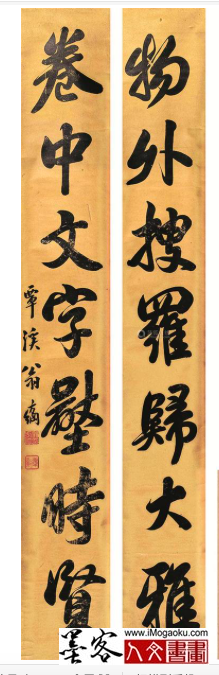 物外搜羅歸大雅
卷中文字時賢
覃溪翁方綱
墨客
www.iMogaoku.com
人文書畫